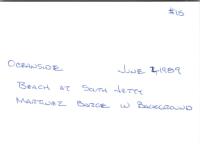 #15
OCEANSIDE JUNE 2, 1989
BEACH AT SOUTH JETTY
MARTINEZ BARGE IN BACKGROUND